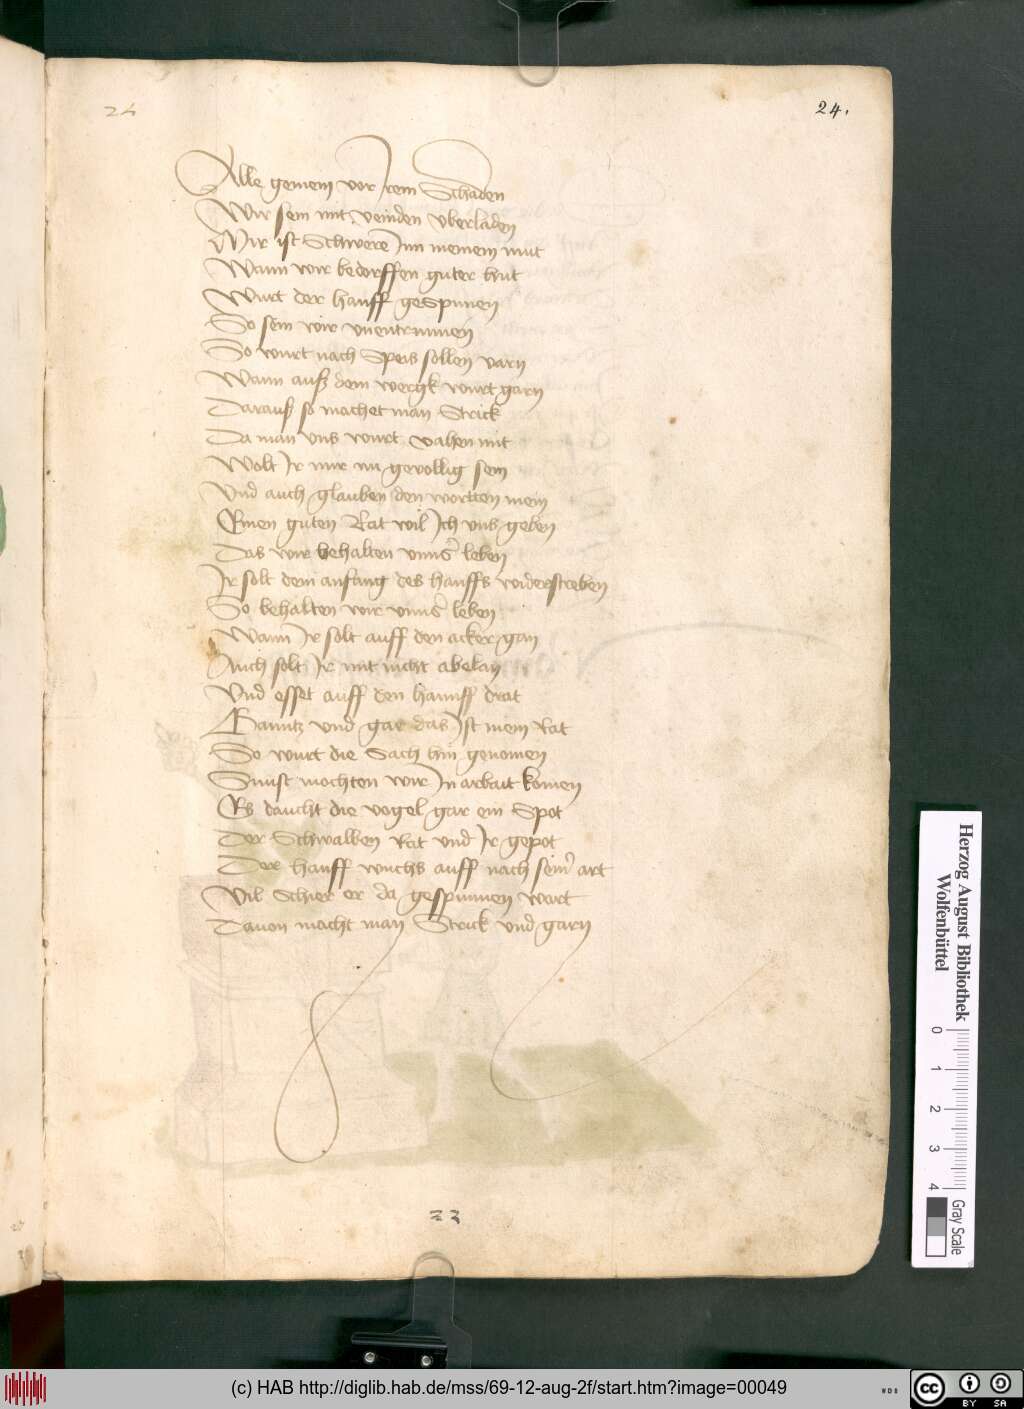 24
24.
Alle gemein vor Irem Schaden
Wir sein mit veinden vberladen
Mir ist Schwere Inn meinem mut
Wann wir bedorffen guter hut
Wurt der hanff gespunnen
So sein wir vnentrunnen
So wurt nach Speis sollen varn
Wann auß dem wergk wurt garn
Darauß so machet man Strick
Da man vns wurt vahen mit
Wolt Ir mir nu gevollig sein
Vnd auch glauben den wortten mein
Einen guten Rat wil Ich vns geben
Das wir behalten vnns' leben
Ir solt dem anfang des hanffs widerstreben
So behalten wir vnns' leben
Wann Ir solt auff den acker gan
Auch solt Ir mit nicht abelan
Vnd esset auff den hannff drat
Ganntz vnd gar das Ist mein Rat
So wurt die Sach hin genomen
Sunst mochten wir In arbait komen
Es daucht die vogel gar ein Spot
Der Schwalben Rat vnd Ir gepot
Der hanff wuchs auff nach sein' art
Vil Schier er da gespunnen wart
Dauon macht man Strick vnd garn
23
Herzog August Bibliothek
Wolfenbüttel
0 1 2 3 4
Gray Scale
(c) HAB http://diglib.hab.de/mss/69-12-aug-2f/start.htm?image=00049
WDB
cc BY SA